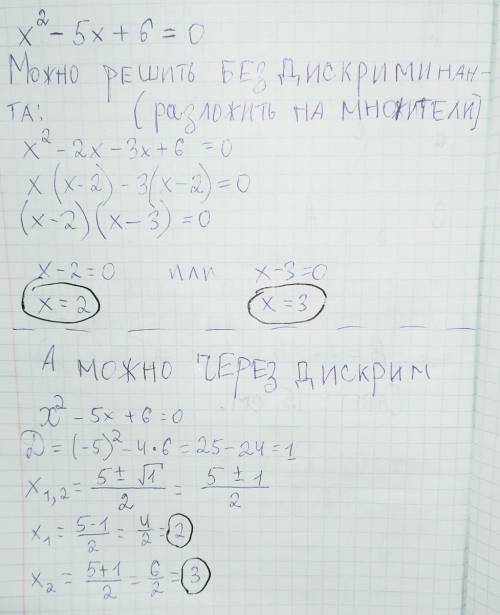 x² - 5x + 6 = 0
Можно решить без дискриминан-
та: (разложить на множители)
x² - 2x - 3x + 6 = 0
x (x-2) - 3(x-2) = 0
(x-2)(x-3) = 0
x-2=0 или x-3=0
x=2 x=3
А можно через дискрим
x² - 5x + 6 = 0
D = (-5)² - 4·6 = 25-24=1
x₁,₂ = (5 ± √1)/2 = (5 ± 1)/2
x₁ = (5-1)/2 = 4/2 = 2
x₂ = (5+1)/2 = 6/2 = 3